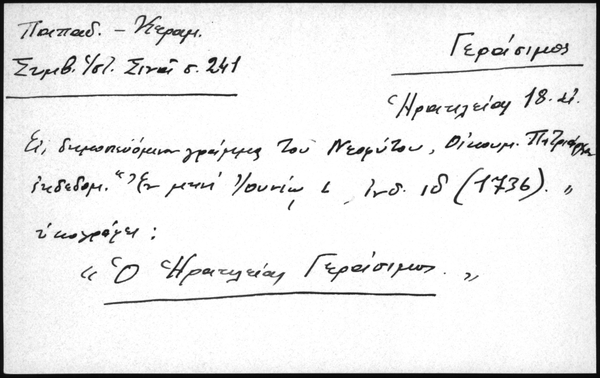 Παπαδ. - Κεραμ.
Συμβ. ἱστ. Σινᾶ σ. 241
Γεράσιμος
Ἡρακλείας 18. αἰ.
Εἰς δημοσιευόμενον γράμμα τοῦ Νεοφύτου, Οἰκουμ. Πατριάρχου
ἐκδεδομ. "Ἐν μηνὶ Ἰουνίῳ ἰνδ. ιδ (1736)."
ὑπογράφει:
"Ὁ Ἡρακλείας Γεράσιμος."